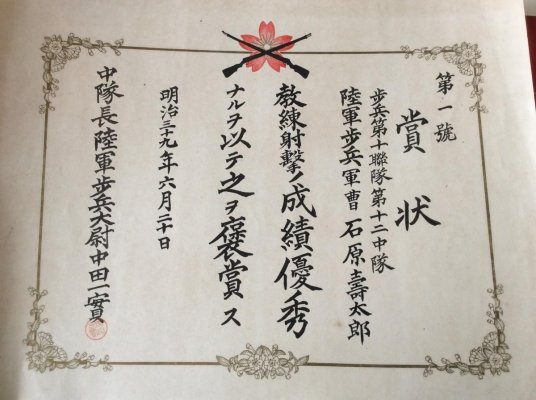 第一號
賞状
歩兵第十聯隊第十二中隊
陸軍歩兵軍曹 石原壽太郎
教練射撃ノ成績優秀
ナルヲ以テ之ヲ褒賞ス
明治三十九年六月二十日
中隊長陸軍歩兵大尉中田一實